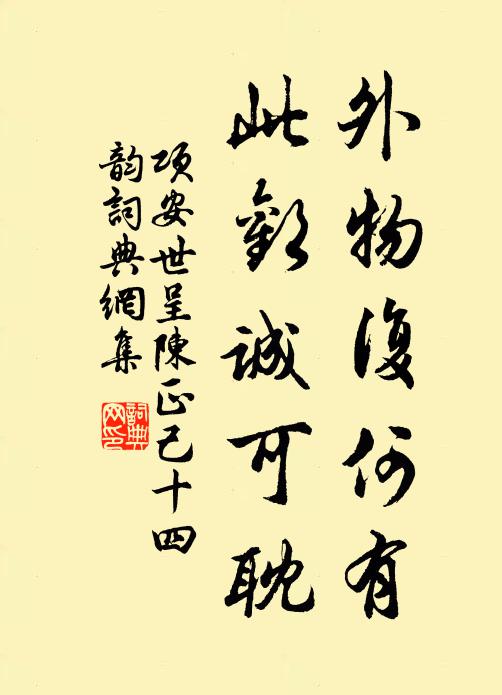 外物復何有
此歡誠可耽
項安世呈陳正己十四
韵詞典網集
詞典網印